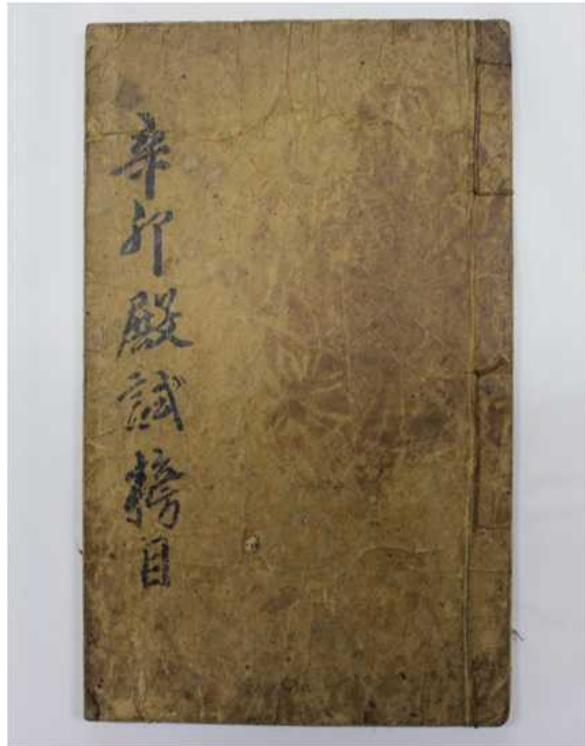 辛卯殿試榜目